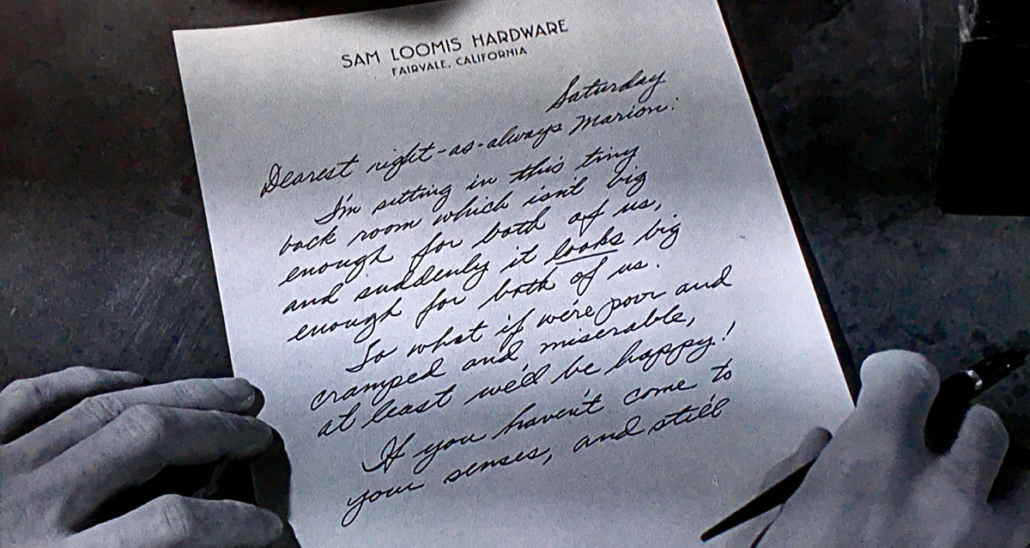 SAM LOOMIS HARDWARE
FAIRVALE, CALIFORNIA
Saturday
Dearest right-as-always Marion:
I'm sitting in this tiny
back room which isn't big
enough for both of us,
and suddenly it looks big
enough for both of us.
So what if we're poor and
cramped and miserable,
at least we'll be happy!
If you haven't come to
your senses, and still